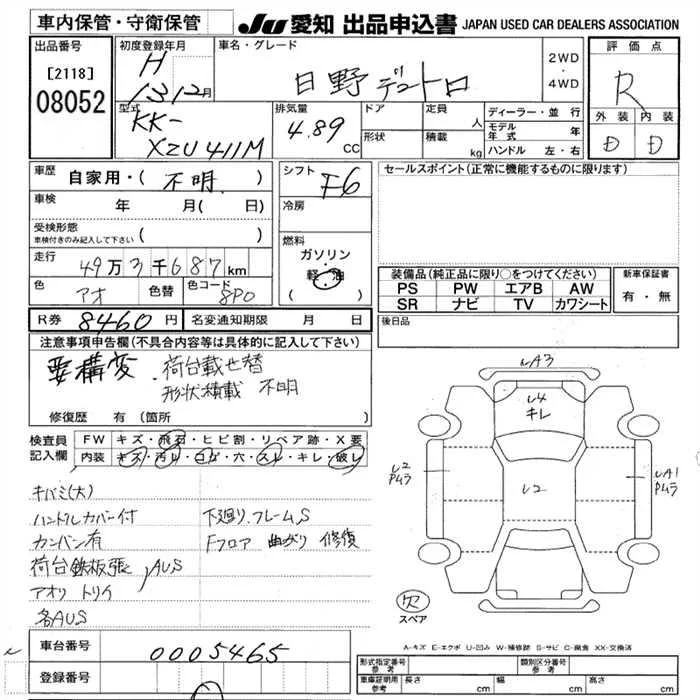 車内保管・守衛保管
JU 愛知 出品申込書 JAPAN USED CAR DEALERS ASSOCIATION
出品番号
[2118]
08052
初度登録年月
H
13 12月
車名・グレード
日野 デュトロ
2WD
・
4WD
評価点
R
型式
KK-
XZU411M
排気量
4.89
CC
ドア
形状
定員
人
積載
kg
ディーラー・並行
モデル年式 年
ハンドル 左・右
外装 内装
D D
車歴 自家用・( 不明 )
車検 年 月( 日)
受検形態
車検付きのみ記入して下さい ( )
走行 49万3千687km
色 アオ 色替 色コード 8P0
シフト F6
冷房
燃料
ガソリン
軽・油
( )
セールスポイント(正常に機能するものに限ります)
装備品(純正品に限り○をつけてください)
PS PW エアB AW
SR ナビ TV カワシート
新車保証書
有・無
R券 8460円 名変通知期限 月 日
後日品
注意事項申告欄(不具合内容等は具体的に記入して下さい)
要構変 荷台載せ替
形状積載 不明
修復歴 有(箇所 )
検査員記入欄
FW キズ・飛石・ヒビ割・リペア跡・X要
内装 キズ・汚レ・コゲ・穴・スレ・キレ・破レ
キバミ(大)
ハンドルカバー付
カンバン有
荷台鉄板張
アオリ トリイ
AUS
各AUS
下廻り.フレームS
Fフロア 曲がり 修復
UA3
U4
キレ
U2
Pムラ
U2
UA1
Pムラ
欠
スペア
A-キズ E-エクボ U-凹み W-補修跡 S-サビ C-腐食 XX-交換済
車台番号 0005465
登録番号
形式指定番号 参考
類別区分番号 参考
車庫証明用 参考 長さ cm 幅 cm 高さ cm